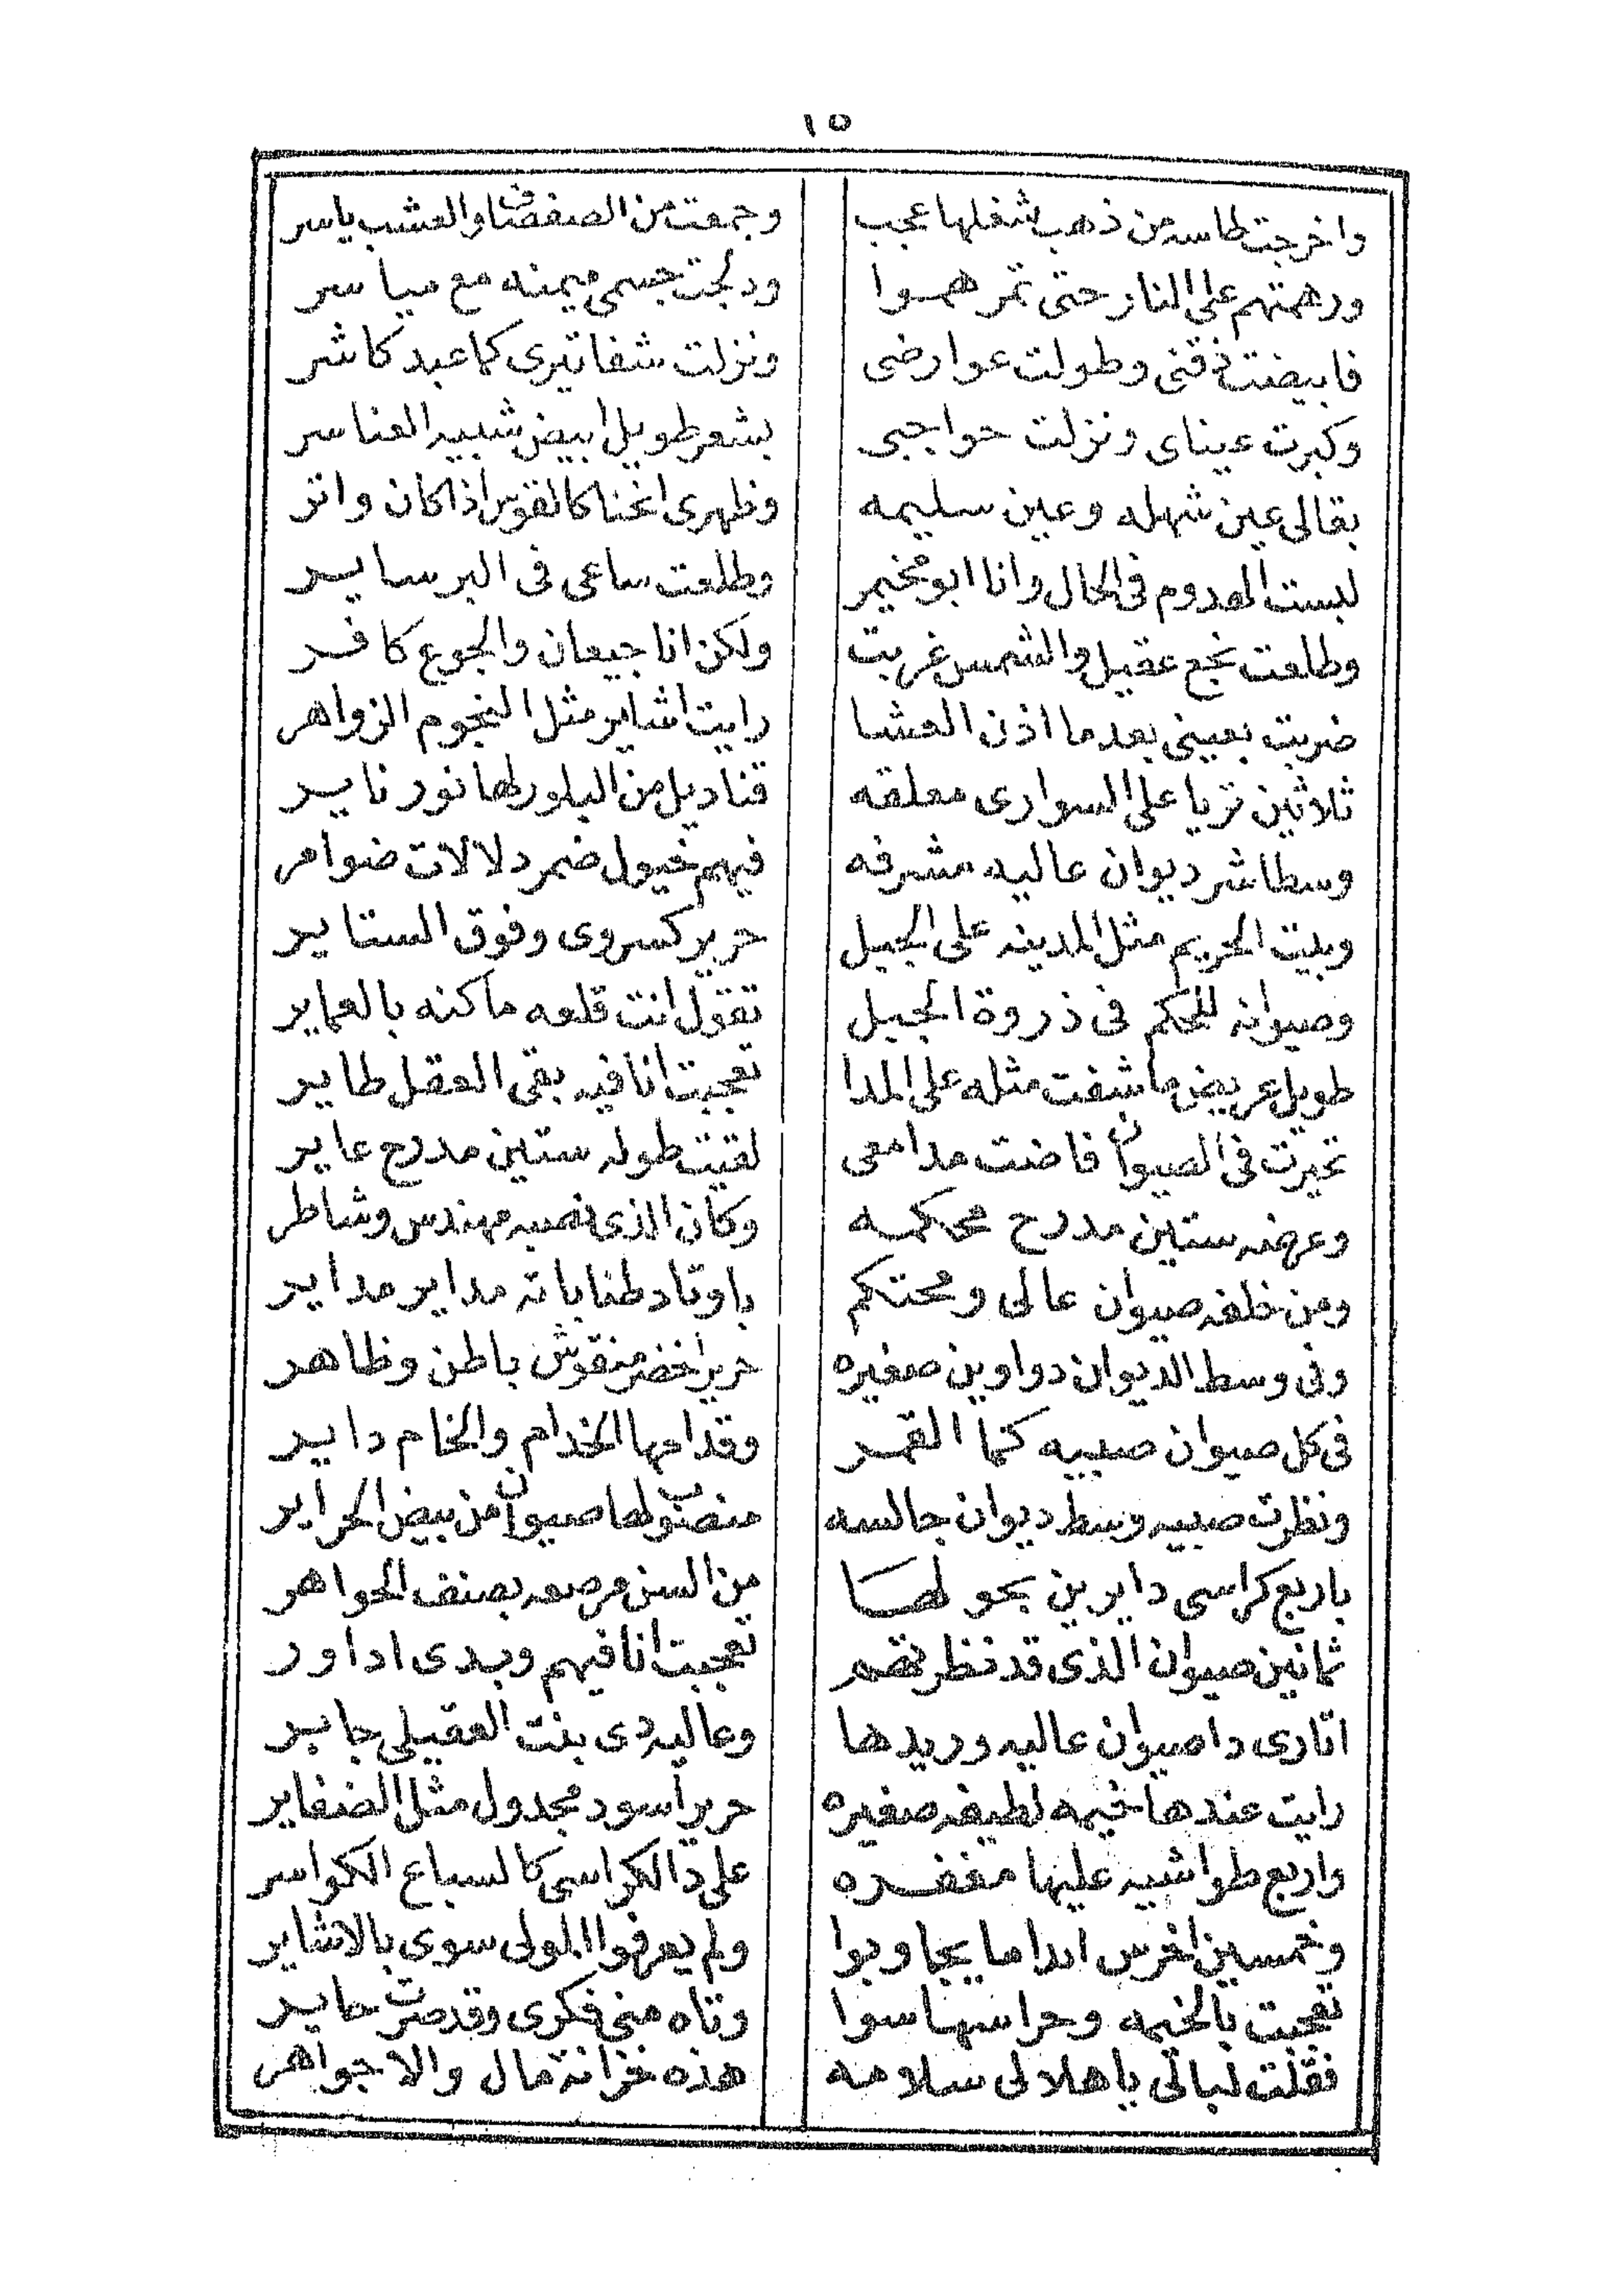 ١٥
واخرجت طاسه من ذهب شغلها عجب وجمعت من الصفصفا والعشب ياسر
ودهمتهم على النار حتى تمرهموا ودلجت جسمى ميمنه مع مياسر
فابيضت ذقنى وطولت عوارضى ونزلت شفاتيرى كما عبد كاشر
وكبرت عيناى ونزلت حواجبى بشعر طويل ابيض شبيه العناسر
بقالى عين شهله وعين سليمه وظهرى انحنا كالقوس اذا كان واتر
لبست الهدوم فى الحال وانا ابو مخيمر وطلعت ساعى فى البر ساير
وطلعت نجع عقيل والشمس غربت ولكن انا جيعان والجوع كافر
ضربت بعينى بعد ما اذن العشا رايت اشاير مثل النجوم الزواهر
ثلاثين تريا على السوارى معلقه قناديل من البلور لها نور ناير
وسطاشر ديوان عاليه مشرفه فيهم خيول ضمر دلالات ضوامر
وبيت الحريم مثل المدينه على الجبل حرير كسروى وفوق الستاير
وصيوانه للحكم فى ذروة الجبل تقول انت قلعه ماكنه بالعماير
طويل عريض ما شفت مثله على المدا تعجبت انا فيه بقى العقل طاير
تحيرت فى الصيوان فاضت مدامعى لقيت طوله ستين مدرح عاير
وعرضه ستين مدرح محكمه وكان الذى نصبه مهندس وشاطر
ومن خلفه صيوان عالى ومحتكم باوتاد طناباته مداير مداير
وفى وسط الديوان دواوين صغيره حرير اخضر منقوش باطن وظاهر
فى كل صيوان صبيه كما القمر وقدامها الخدام والخام داير
ونظرت صبيه وسط ديوان جالسه منصوب لها صيوان من بيض الحراير
باربع كراسى دايرين بحولها من السن مرصعه بصنف الجواهر
ثمانين صيوان الذى قد نظرتهم تعجبت انا فيهم وبدى اداور
اتارى دا صيوان عاليه وريدها وعاليه دى بنت العقيلى جابر
رايت عندها خيمه لطيفه صغيره حرير اسود مجدول مثل الضفاير
واربع طواشيه عليها مغفره على دالكراسى كالسباع الكواسر
وخمسين اخرس ابدا ما يجاوبوا ولم يعرفوا المولى سوى بالاشاير
تعجبت بالخيمه وحراسها سوا وتاه منى فكرى وقد صرت حاير
فقلت لبالى ياهلالى سلامه هذه خزانة مال والا جواهر